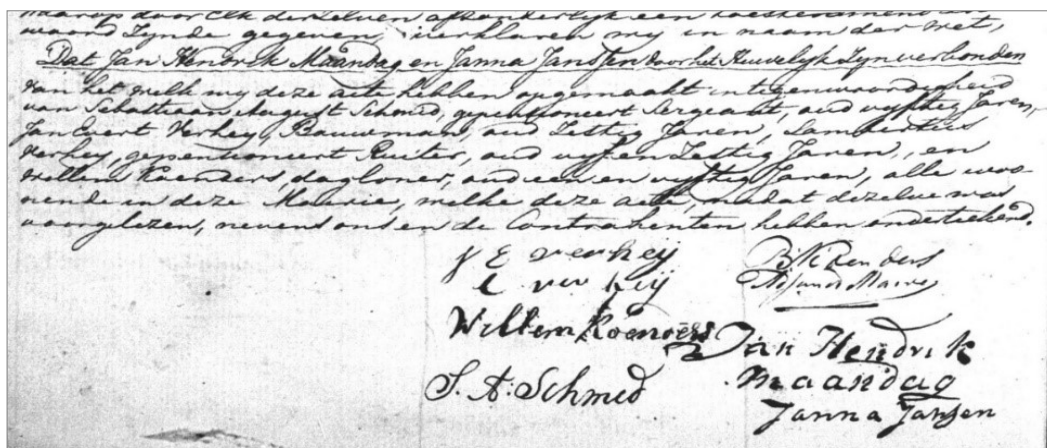 waarop door elk derzelven afzonderlijk een toestemmend ant
woord Zynde gegeven, verklaren wy in naam der Wet,
Dat Jan Hendrik Maandag en Janna Janssen door het Huwelyk Zyn verbonden
van het welk wy deze acte hebben opgemaakt in tegenwoordigheid
van Sebastiaan August Schmid, gepentioneert Sergeant, oud vyftig Jaren,
Jan Evert Verhey, Bouwman, oud Zestig Jaren, Lambertus
Verhey, gepentioneert Ruiter, oud vyf en Zestig Jaren, en
Willem Roenders, dagloner, oud een en vyftig Jaren, alle woo-
nende in deze Mairie, welke deze acte, nadat dezelve was
voorgelezen, nevens ons en de Contrahenten hebben ondertekend.
J E verheij
L ver heij
Renders
Adjunct Maire
Willem Roenders
Jan Hendrik
maandag
S. A. Schmed
Janna Jansen